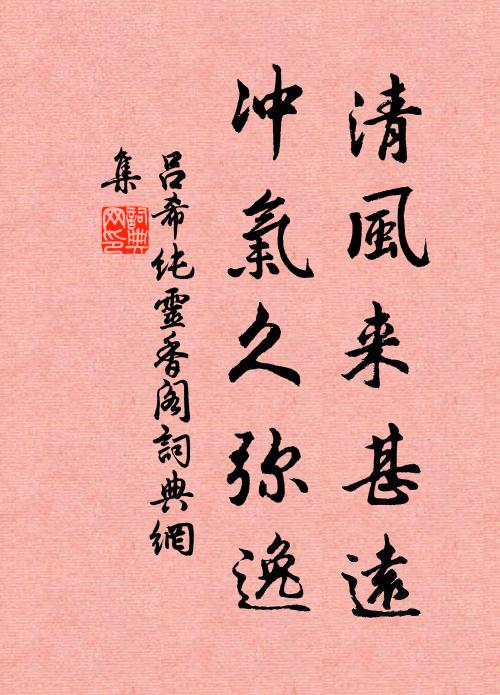 清風来甚遠
冲氣久弥逸
吕希純靈香阁詞典網
集
詞典
网印